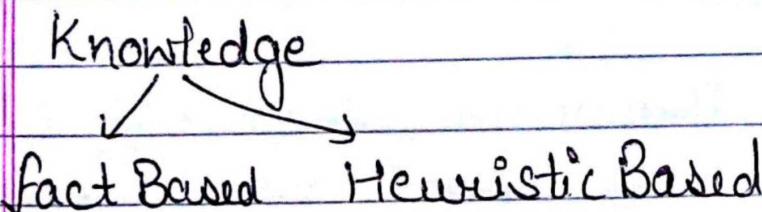 Knowledge
fact Based Heuristic Based